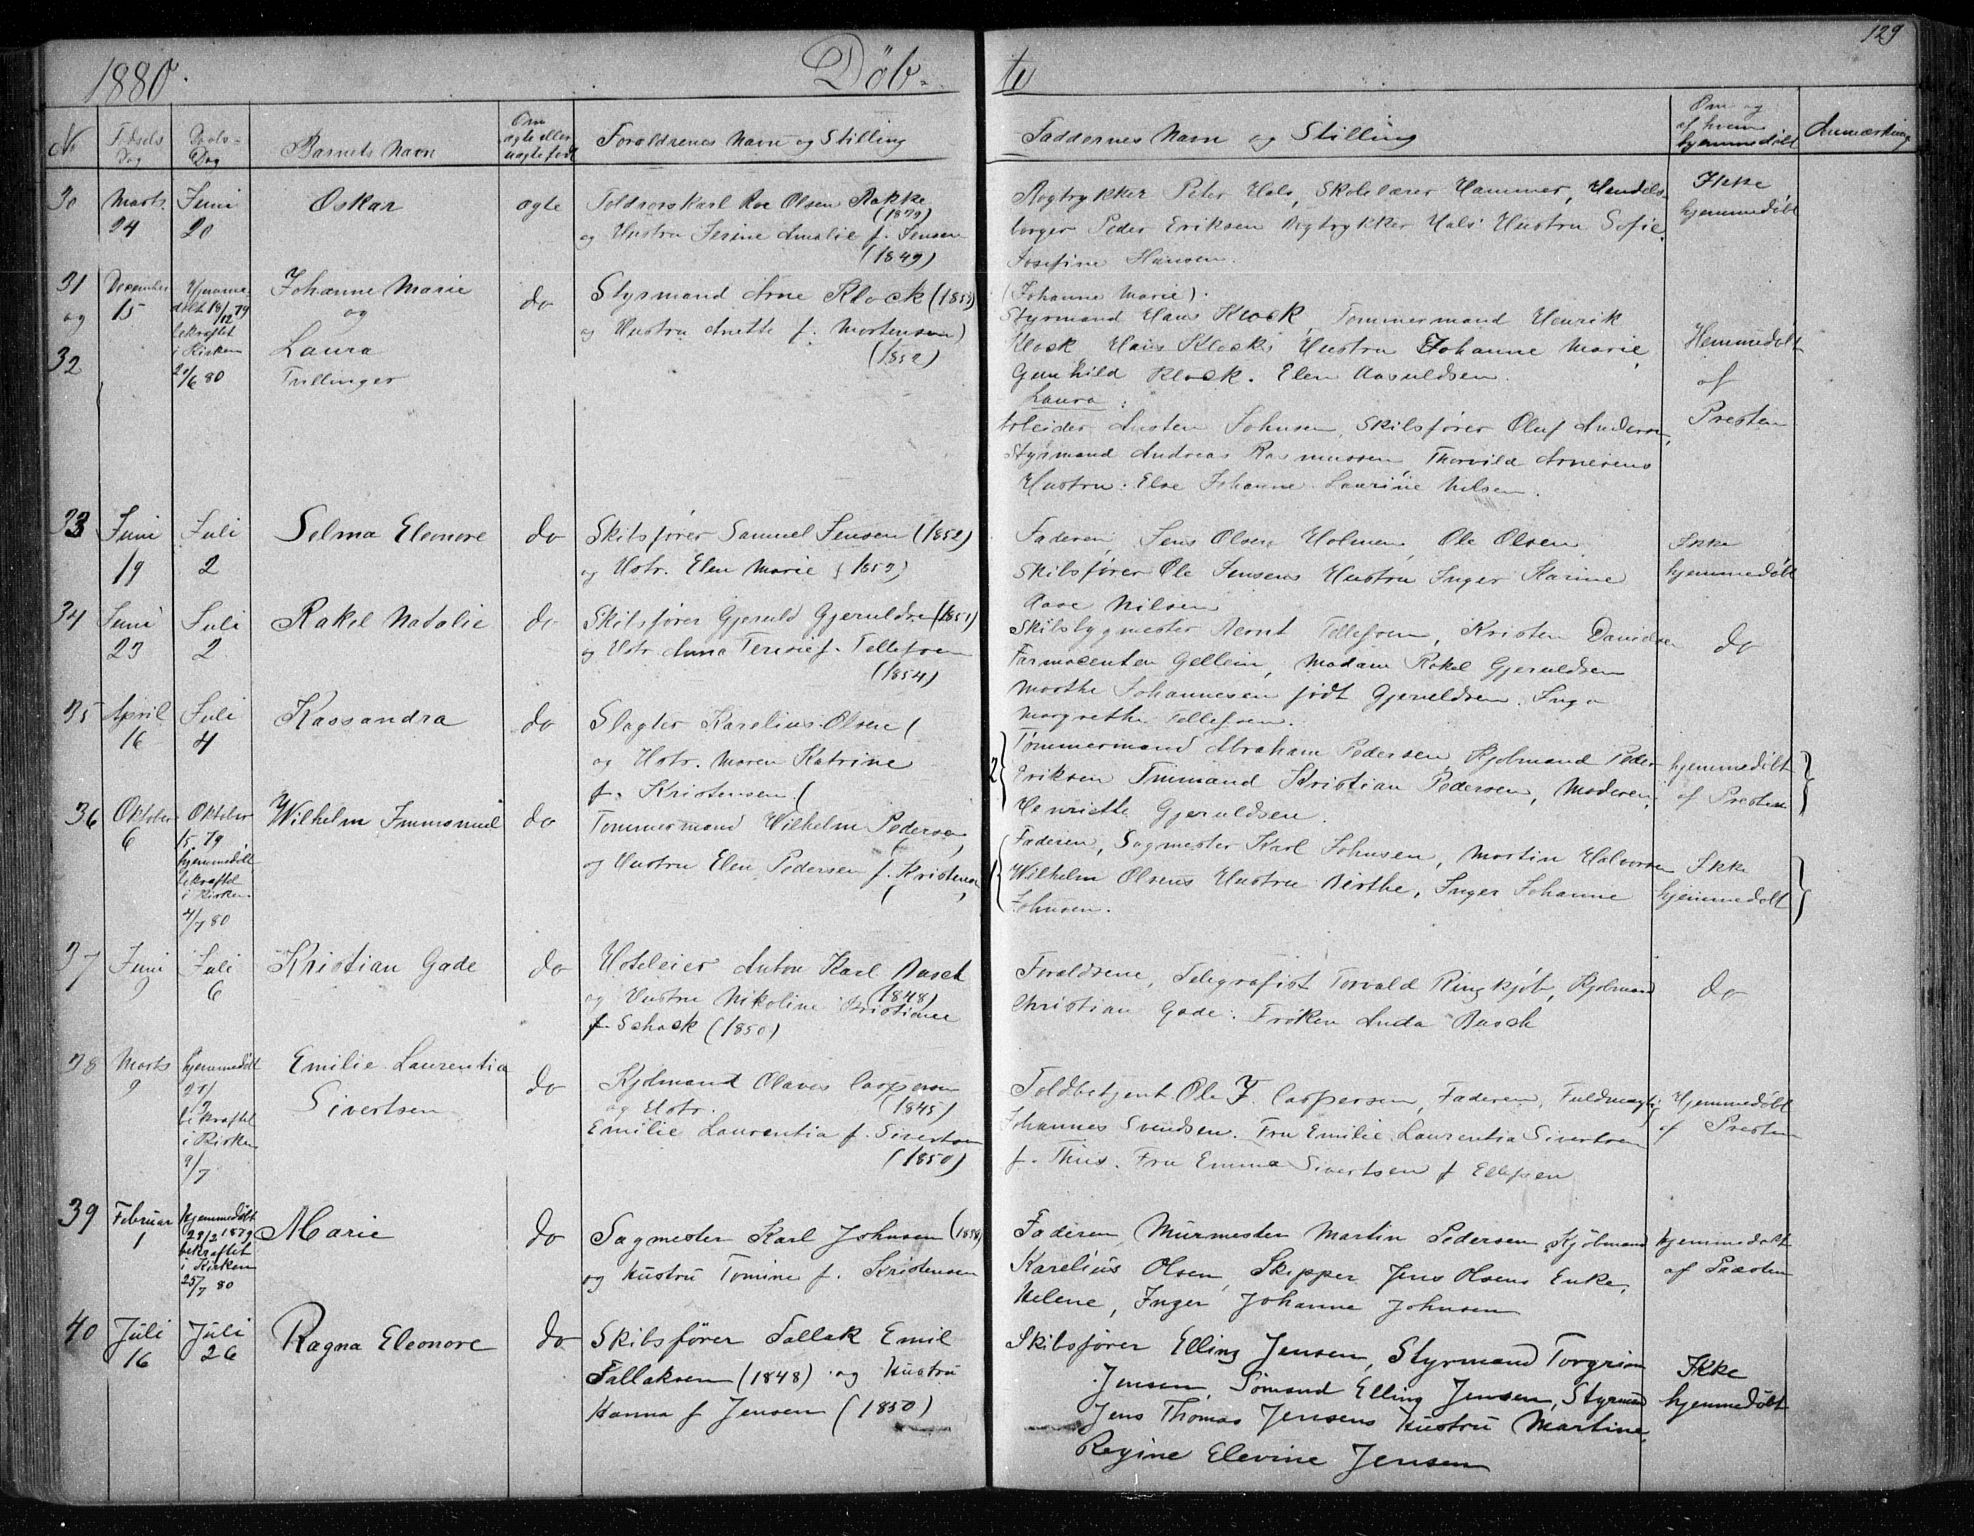 129
1880.
Döb-
te
No
Fødsels Dag
Daabs-Dag
Barnets Navn
Om ægte eller uægte født
Forældrenes Navn og Stilling
Faddernes Navn og Stilling
Om og af hvem hjemmedøbt
Anmærkning
30
Marts 24
Juni 20
Oskar
ægte
Toldrorskarl Roe Olsen Bakke
og Hustru Serine Amalie f. Jensen
(1849)
Bogtrykker Peter Hals, Skolelærer Hammer, Handels-
borger Peder Eriksen Bogtrykker Hals' Hustru Sofie
Josefine Hansen.
Ikke
hjemmedöbt
31
og
32
December
15
Hjemme
döbt 18/12 79
bekræftet
i Kirken
20/6 80
Johanne Marie
og
Laura
Tvillinger
do
Styrmand Arne Klock (1853)
og Hustru Anette f. Mortensen
(1852)
(Johanne Marie).
Styrmand Hans Klock, Tömmermand Henrik
Klock Hans Klocks Hustru Johanne Marie,
Gunhild Klock. Elen Aasuldsen.
Laura:
Arbeider Austen Johnsen, Skibsfører Oluf Andersen,
Styrmand Andreas Rasmussen, Thorvild Arnesens
Hustru. Else Johanne Laurine Nilsen.
Hemmedøbt
af
Presten
33
Juni
19
Juli
2
Selma Eleonore
do
Skibsfører Samuel Jensen (1852)
og Hstr. Elen Marie
Faderen, Jens Olsen Holmen, Ole Olsen
Skibsfører Ole Jensens Hustru Inger Karine
Aase Nilsen
Ikke
hjemmedöbt
34
Juni
23
Juli
2
Rakel Natalie
do
Skibsfører Gjeruld Gjeruldsen (1851)
og Hstr. Anna Terese f. Tellefsen
(1854)
Skibsbygmester Bernt Tellefsen, Kristen Davidsen
Farmaceuten Gellein, Madam Rakel Gjeruldsen
Marthe Johannesen født Gjeruldsen. Inga
Margrethe Tellefsen.
do
35
April
16
Juli
4
Kassandra
do
Slagter Karelius Olsen (
og Hstr. Maren Katrine
f. Kristensen (
2
Tømmermand Abraham Pedersen, Kjøbmand Peder
Eriksen Tmmand Kristian Pedersen, Moderen,
Henriette Gjeruldsen.
hjemmedöbt
af Presten
36
Oktober
6
Oktober
15. 79
hjemmedöbt
bekræftet
i Kirken.
4/7 80
Wilhelm Immanuel
do
Tommermand Wilhelm Pedersen
og Hustru Elen Pedersen f. Kristensen
Faderen, Sagmester Karl Johnsen, Martin Halvorsen
Wilhelm Olsens Hustru Birthe, Inger Johanne
Johnsen.
Ikke
hjemmedöbt
37
Juni
9
Juli
6
Kristian Gade
do
Hoteleier Anton Karl Basch
(1848)
og Hustru Nikoline Kristiane
f. Schack (1850)
Forældrene, Telegrafist Torvald Ringkjøb, Kjøbmand
Christian Gade. Frøken Anda Basch
do
38
Marts
9
hjemmedöbt
bekræftet
i Kirken
9/7
Emilie Laurentia
Sivertsen
do
Kjøbmand Olaves Caspersen
og Hstr. (1845)
Emilie Laurentia f. Sivertsen
(1850)
Toldbetjent Ole J. Caspersen, Faderen, Fuldmægtig
Johannes Svendsen. Fru Emilie Laurentia Sivertsen
f. Thiis. Fru Emma Sivertsen f Ellefsen
Hjemmedöbt
af Presten
39
Februar
1
Hjemmedöbt
29/2 1879
bekræftet
i Kirken
25/7 80
Marie
do
Sagmester Karl Johnsen
og Hustru Tomine f. Kristensen
Faderen, Murmester Martin Pedersen, Kjøbmand
Karelius Olsen, Skipper Jens Olsens Enke,
Helene, Inger Johanne Johnsen
hjemmedøbt
af Præsten
40
Juli
16
Juli
26
Ragna Eleonore
do
Skibsfører Tallak Emil
Tallaksen (1848) og Hustru
Hanna f Jensen (1850)
Skibsfører Elling Jensen, Styrmand Torgrim
Jensen, Sømand Elling Jensen, Styrmd
Jens Thomas Jensens Hustru Martine,
Regine Elevine Jensen
Ikke
hjemmedöbt